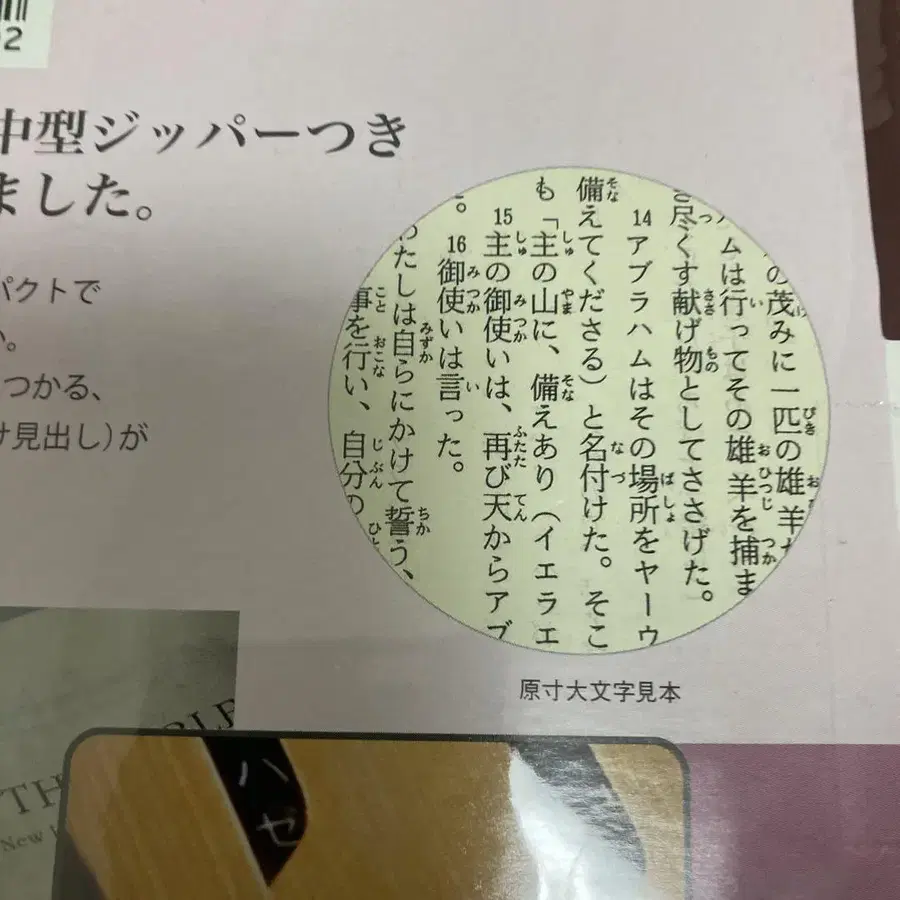 02
中型ジッパーつき
ました。
パクトで
い。
つかる、
け見出し)が
の茂みに一匹の雄羊
ムは行ってその雄羊を捕ま
尽くす献げ物としてささげた。
14アブラハムはその場所をヤーウ
備えてくださる)と名付けた。そこ
も「主の山に、備えあり(イエラエ
15主の御使いは、再び天からアブ
。16御使いは言った。
わたしは自らにかけて誓う、
事を行い、自分の
原寸大文字見本
BLE
TH
New
ハゼ